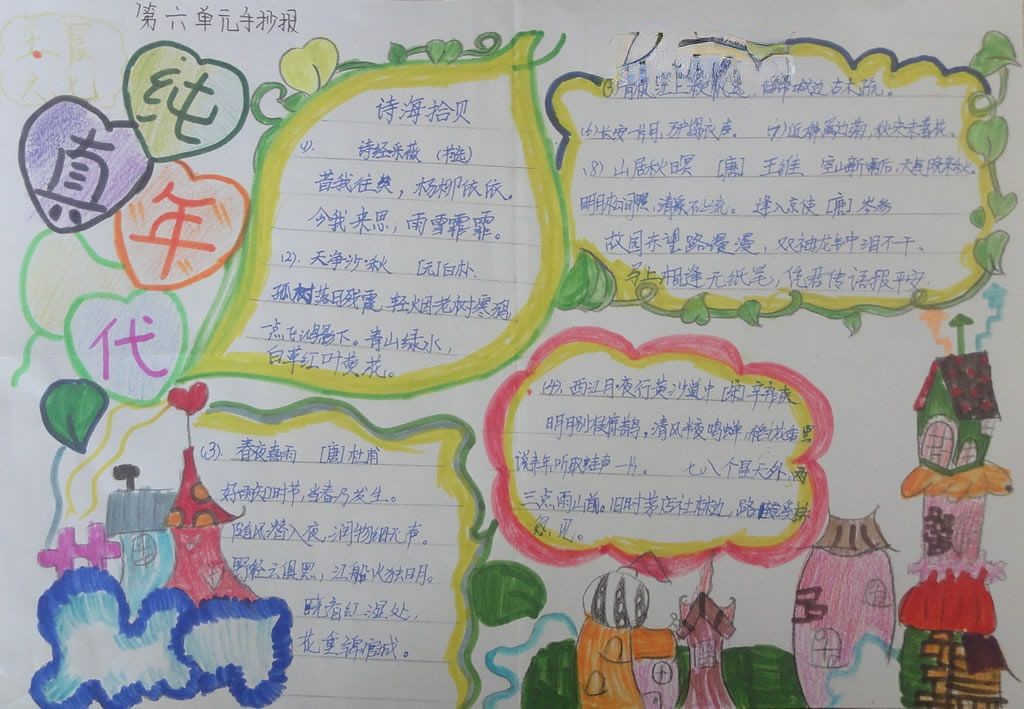 第六单元手抄报
纯真年代
诗海拾贝
(1). 诗经采薇 (节选)
昔我往矣，杨柳依依。
今我来思，雨雪霏霏。
(2). 天净沙·秋 [元]白朴.
孤树落日残霞，轻烟老树寒鸦，
一点飞鸿影下。青山绿水，
白草红叶黄花。
(3). 春夜喜雨 [唐]杜甫
好雨知时节，当春乃发生。
随风潜入夜，润物细无声。
野径云俱黑，江船火独明。
晓看红湿处，
花重锦官城。
(4). 西江月·夜行黄沙道中 [宋]辛弃疾
明月别枝惊鹊，清风半夜鸣蝉，稻花香里
说丰年，听取蛙声一片。 七八个星天外，两
三点雨山前。旧时茅店社林边，路转溪头
忽见。
城边古木疏。
(6)长安一片月，万户捣衣声。 (7)近种篱边菊，秋来未著花。
(8) 山居秋日暝 [唐] 王维 空山新雨后，天气晚来秋。
明月松间照，清泉石上流。 逢入京使 [唐] 岑参
故园东望路漫漫，双袖龙钟泪不干。
马上相逢无纸笔，凭君传语报平安.